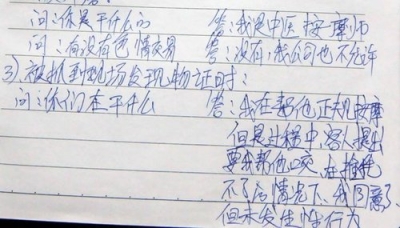 问:你是干什么的 答:我是中医按摩师
问:有没有色情交易 答:没有,我公司也不允许
3).被抓到现场发现物证时:
问:你们在干什么 答:我在帮他正规按摩
但是过程中,客人提出
要我帮他咬,在推托
不了后情况下、我同意了,
但未发生性行为